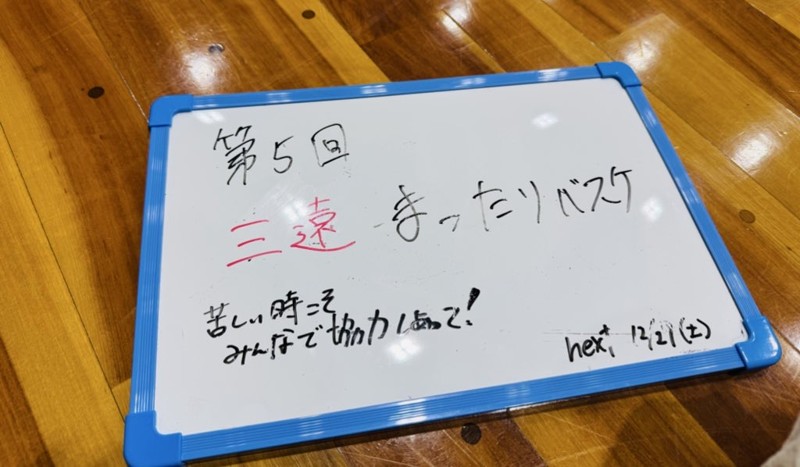 第5回
三遠 まったりバスケ
苦しい時こそ
みんなで協力しあって!
next 12/21(土)